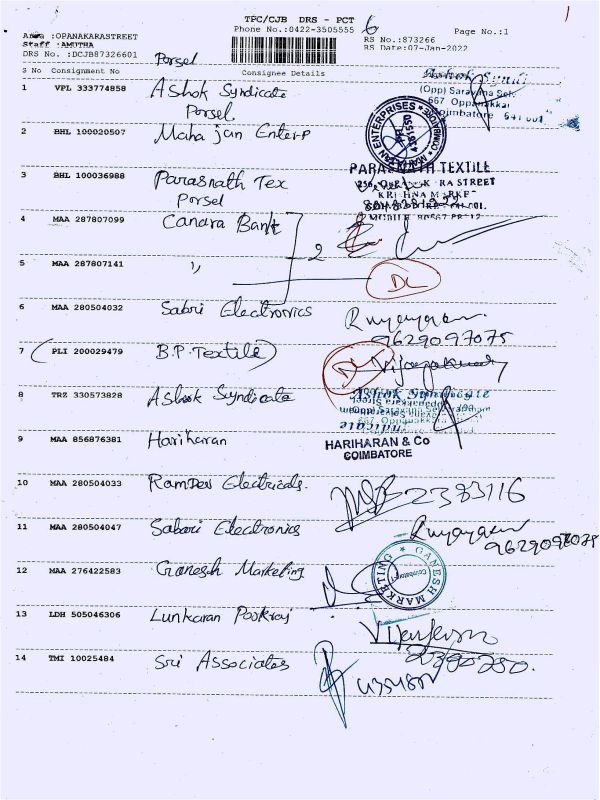 TPC/CJB DRS - PCT
6
Phone No.:0422-3505555
Page No.:1
Area :OPANAKARASTREET
RS No.:873266
Staff :AMUTHA
RS Date:07-Jan-2022
DRS No. :DCJB87326601
Porsel
S No Consignment No Consignee Details
Ashok Syndi
1 VPL 333774858 Ashok Syndicate
(Opp) Saravana Sel
667 Oppanakkar
Porsel
Coimbatore 641 001
2 BHL 100020507 Mahajan Enterp
MAHAJAN ENTERPRISES
3 BHL 100036988 Parasnath Tex
PARASNATH TEXTILE
RA STREET
KRISHNA MARKE
Porsel
4 MAA 287807099 Canara Bank
2
5 MAA 287807141 "
DL
6 MAA 280504032 Sabri Electronics
9629097075
7 (PLI 200029479 B.P. Textile)
DL Vijayakumar
8 TRZ 330573828 Ashok Syndicate
Ashok Syndicate
9 MAA 856876381 Hariharan
HARIHARAN & Co
COIMBATORE
10 MAA 280504033 RamDev Electricals.
2383116
11 MAA 280504047 Sabari Electronics
9629097075
12 MAA 276422583 Ganesh Marketing
GANESH MARKETING
Coimbatore-1
13 LDH 505046306 Lunkaran Pookraj
2390250.
14 TMI 10025484 Sri Associates